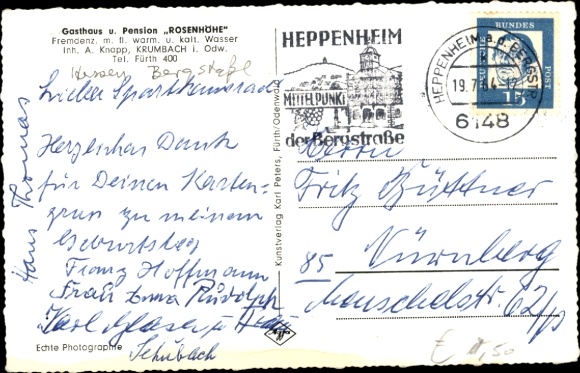 Gasthaus u. Pension „ROSENHÖHE"
Fremdenz. m. fl. warm. u. kalt. Wasser
Inh. A. Knapp, KRUMBACH i. Odw.
Tel. Fürth 400
Hessen Bergstraße
Lieber Sportkamerad
Herzlichen Dank
für Deinen Karten-
gruss zu meinem
Geburtstag
Franz Hoffmann
Frau Erna Rudolph
Karl
Schubach
Hans Thomas
Echte Photographie
Kunstverlag Karl Peters, Fürth/Odenwald
HEPPENHEIM
MITTELPUNKT
der Bergstraße
HEPPENHEIM a.d. BERGSTR
19.7.64
6148
DEUTSCHE BUNDESPOST
15
Herrn
Fritz Büttner
85 Nürnberg
62/
1,50